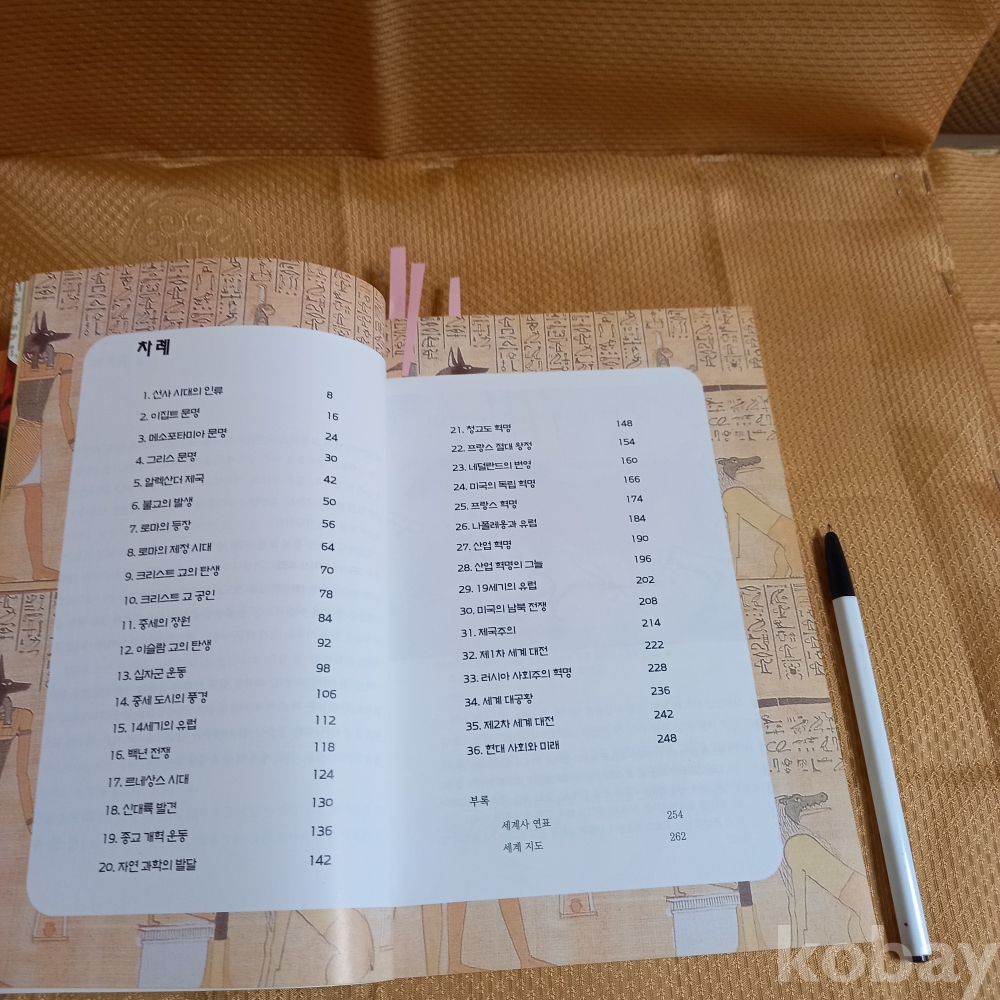 차례
1. 선사 시대의 인류 8
2. 이집트 문명 16
3. 메소포타미아 문명 24
4. 그리스 문명 30
5. 알렉산더 제국 42
6. 불교의 발생 50
7. 로마의 등장 56
8. 로마의 제정 시대 64
9. 크리스트 교의 탄생 70
10. 크리스트 교 공인 78
11. 중세의 장원 84
12. 이슬람 교의 탄생 92
13. 십자군 운동 98
14. 중세 도시의 풍경 106
15. 14세기의 유럽 112
16. 백년 전쟁 118
17. 르네상스 시대 124
18. 신대륙 발견 130
19. 종교 개혁 운동 136
20. 자연 과학의 발달 142
21. 청교도 혁명 148
22. 프랑스 절대 왕정 154
23. 네덜란드의 번영 160
24. 미국의 독립 혁명 166
25. 프랑스 혁명 174
26. 나폴레옹과 유럽 184
27. 산업 혁명 190
28. 산업 혁명의 그늘 196
29. 19세기의 유럽 202
30. 미국의 남북 전쟁 208
31. 제국주의 214
32. 제1차 세계 대전 222
33. 러시아 사회주의 혁명 228
34. 세계 대공황 236
35. 제2차 세계 대전 242
36. 현대 사회와 미래 248
부록
세계사 연표 254
세계 지도 262
kobay